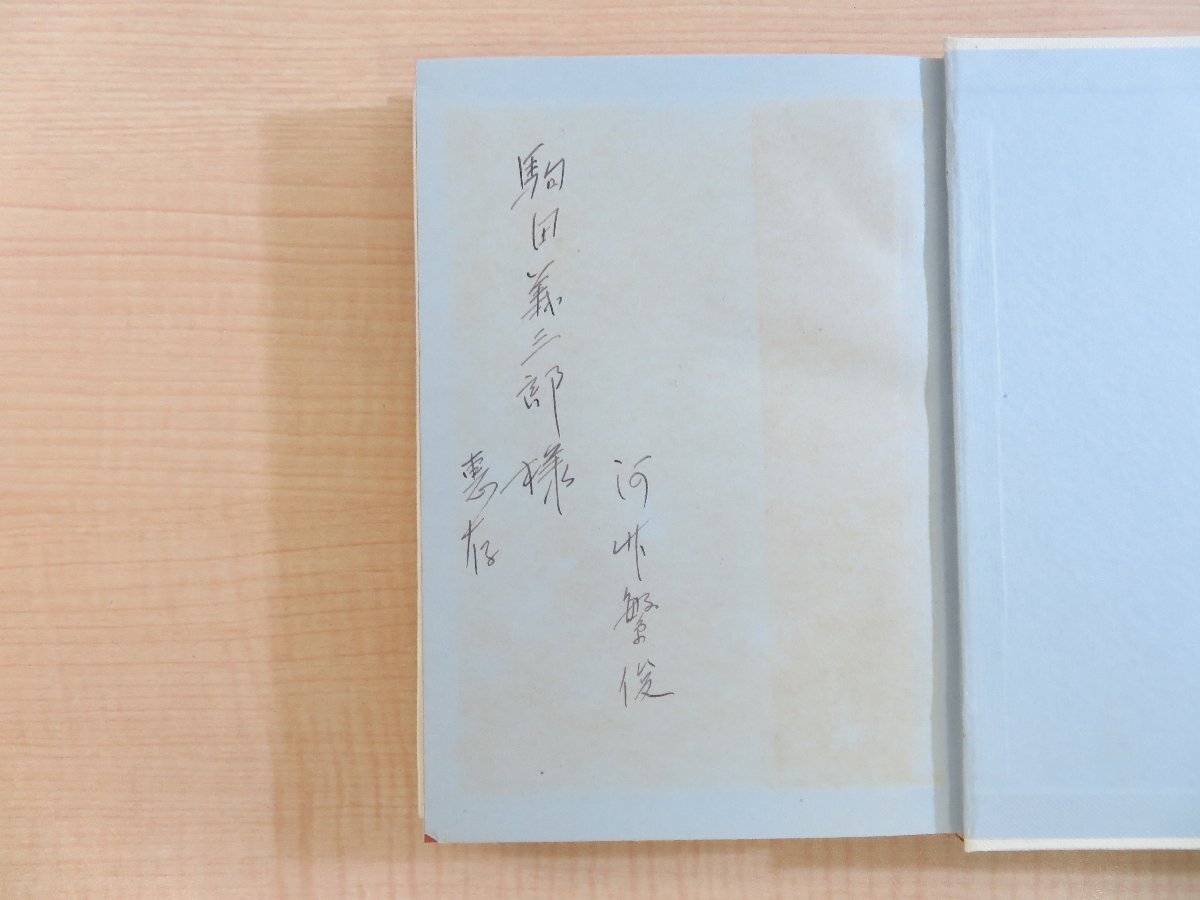 河竹繁俊
駒田義三郎様
恵存